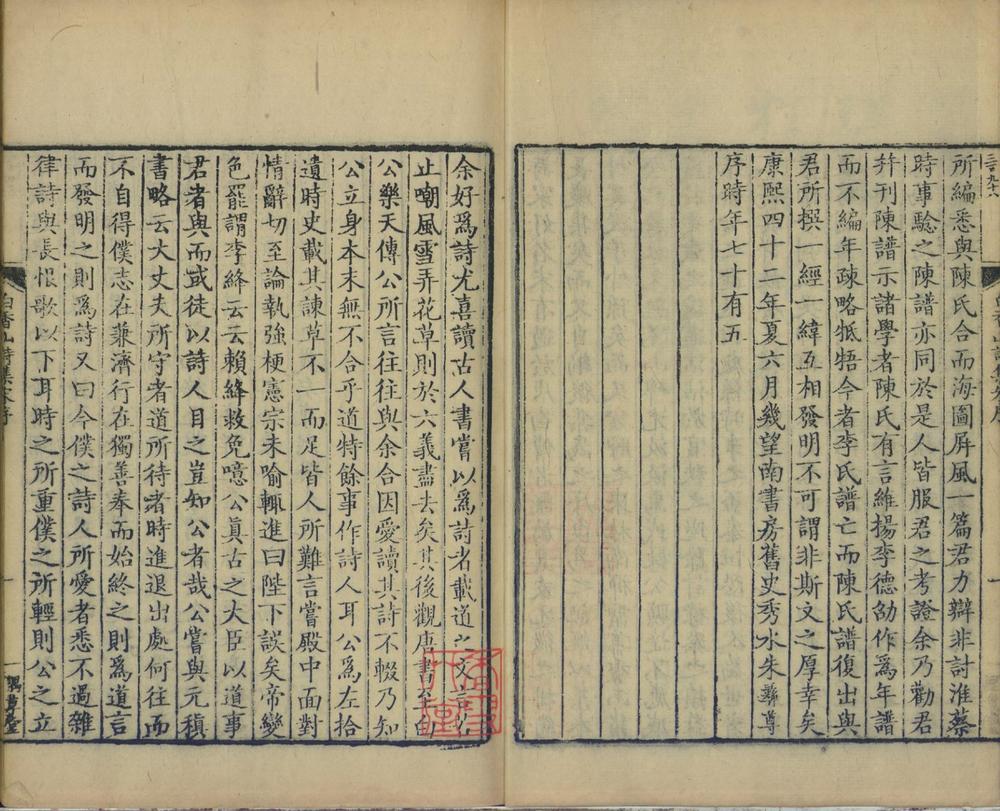 所編悉與陳氏合而海圖屏風一篇君力辯非討淮蔡
時事驗之陳譜亦同於是人皆服君之考證余乃勸君
幷刊陳譜示諸學者陳氏有言維揚李德劭作爲年譜
而不編年疎略牴牾今者李氏譜亡而陳氏譜復出與
君所撰一經一緯互相發明不可謂非斯文之厚幸矣
康熙四十二年夏六月幾望南書房舊史秀水朱彝尊
序時年七十有五
余好爲詩尤喜讀古人書嘗以爲詩者載道之文言
止嘲風雪弄花草則於六義盡去矣其後觀唐書至白
公樂天傳公所言往往與余合因愛讀其詩不輟乃知
公立身本末無不合乎道特餘事作詩人耳公爲左拾
遺時史載其諫草不一而足皆人所難言嘗殿中面對
情辭切至論執強梗憲宗未喻輒進曰陛下誤矣帝變
色罷謂李絳云云賴絳救免噫公眞古之大臣以道事
君者與而或徒以詩人目之豈知公者哉公嘗與元稹
書略云大丈夫所守者道所待者時進退出處何往而
不自得僕志在兼濟行在獨善奉而始終之則爲道言
而發明之則爲詩又曰今僕之詩人所愛者悉不過雜
律詩與長恨歌以下耳時之所重僕之所輕則公之立
白香山詩集 序
一
一隅草堂